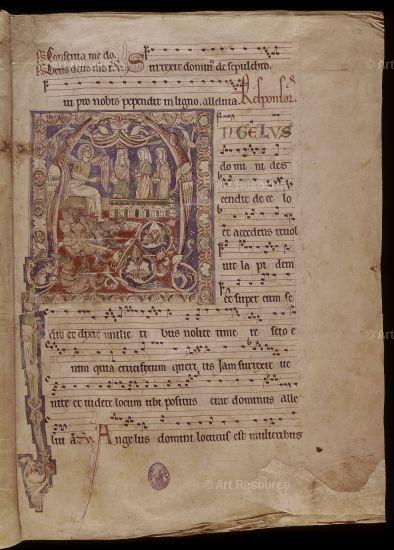 Conserva me do.
Deus deus meus r. V. Surrexit dominus de sepulchro.
qui pro nobis pependit in ligno, alleluia. Responsor.
NGELVS
do mi ni des
cendit de ce lo
et accedens revol
vit la pi dem
et super eum se
dit et dixit mulie ri bus nolite time re scio e
nim quia crucifixum queri tis Jam surrexit ve
nite et videte locum ubi positus erat dominus alle
luia. V. Angelus domini locutus est mulieribus
© Art Resource